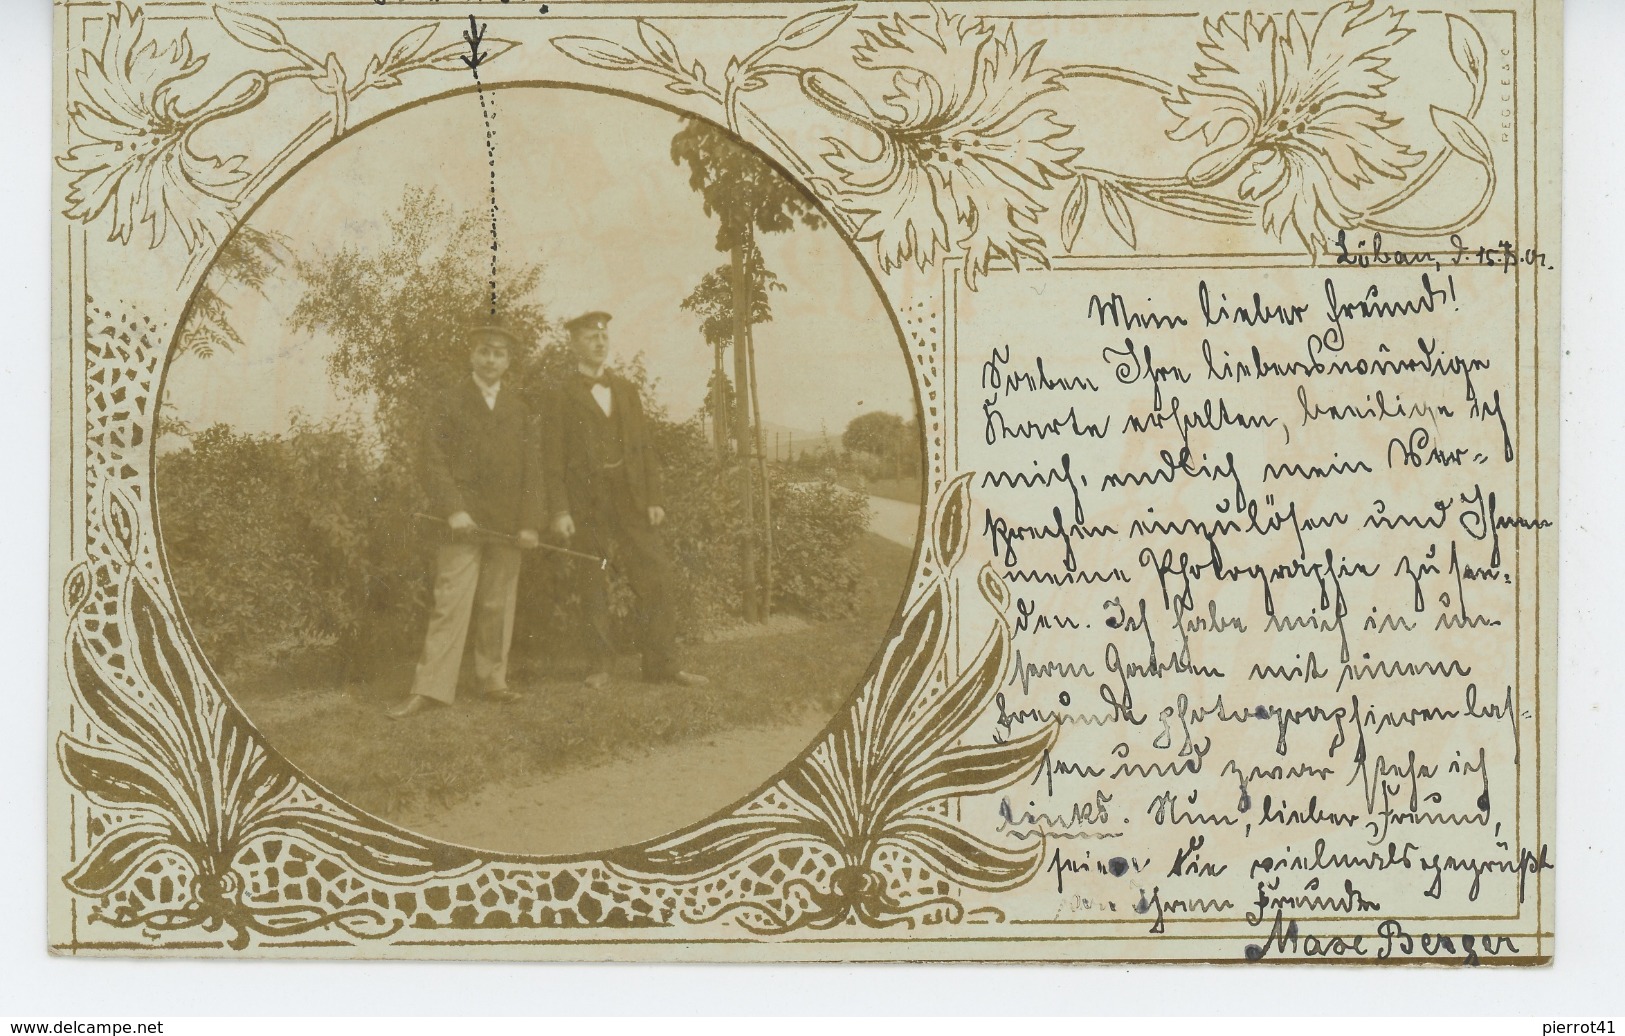 REGCE & C
Löbau, d. 15.
Mein lieber Freund!
Soeben Ihre liebenswürdige
Karte erhalten, beeilige ich
mich, endlich mein Ver=
sprechen einzulösen und Ihnen
meine Photographie zu sen=
den. Ich habe mich in un-
serm Garten mit einem
Freunde photographieren las=
sen und zwar stehe ich
links. Nun, lieber Freund,
seien Sie vielmals gegrüßt
von Ihrem Freunde
Max Berger
www.delcampe.net
pierrot41